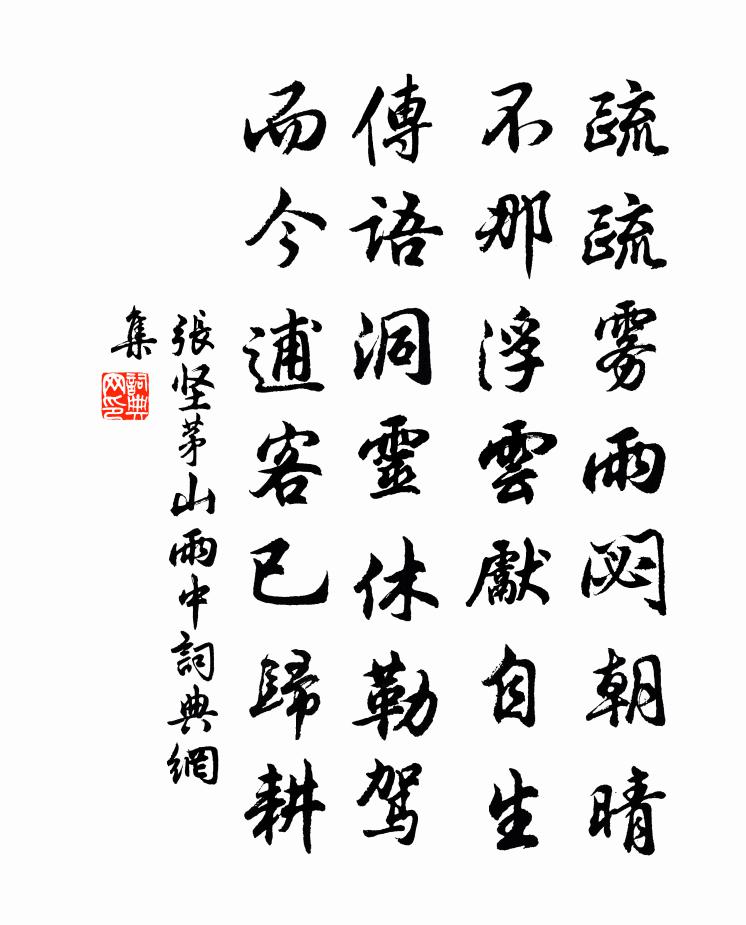 疏疏雾雨閟朝晴
不那浮雲獻自生
傳語洞靈休勒駕
而今逋客已歸耕
張坚茅山雨中詞典網
集
詞典
网印